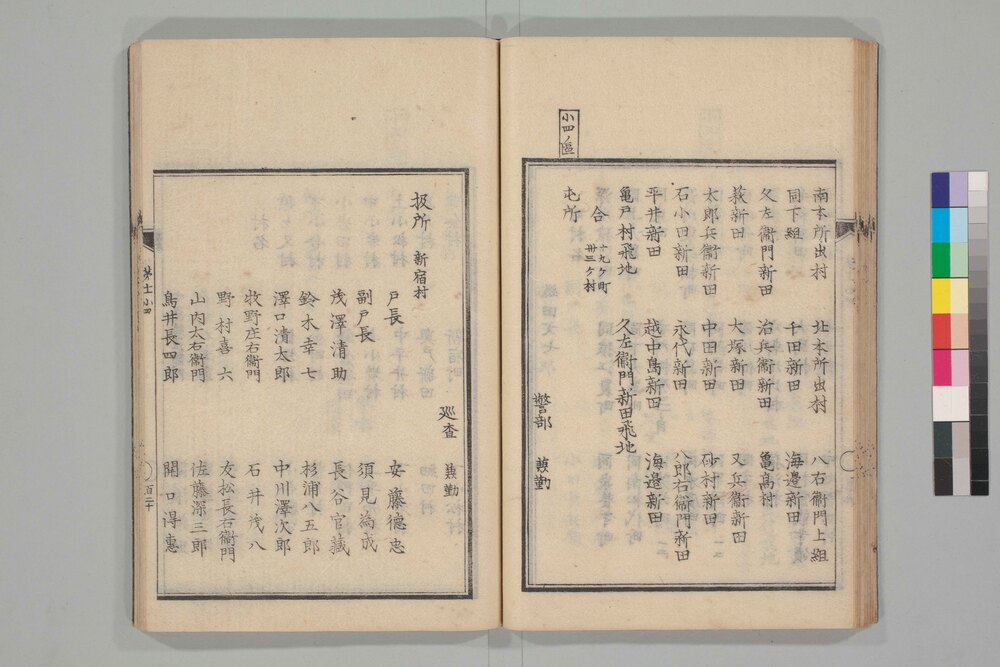 南本所出村 北本所出村 八右衞門上組
同下組 千田新田 海邉新田
久左衞門新田 治兵衞新田 亀高村
荻新田 大塚新田 又兵衞新田
太郎兵衞新田 中田新田 砂村新田
石小田新田 永代新田 八郎右衞門新田
平井新田 越中島新田 海邉新田
亀戸村飛地 久左衞門新田飛地
合 十九ヶ町
卅三ヶ村
屯所
小四ノ區
警部 兼勤
廵査 兼勤
扱所 新宿村
戸長 安藤德忠
副戸長 須見為成
茂澤清助 長谷官藏
鈴木幸七 杉浦八五郎
澤口清太郎 中川澤次郎
牧野庄右衞門 石井茂八
野村喜六 友松長右衞門
山内太右衞門 佐藤深三郎
鳥井長四郎 関口得惠
第十一小四
百二十